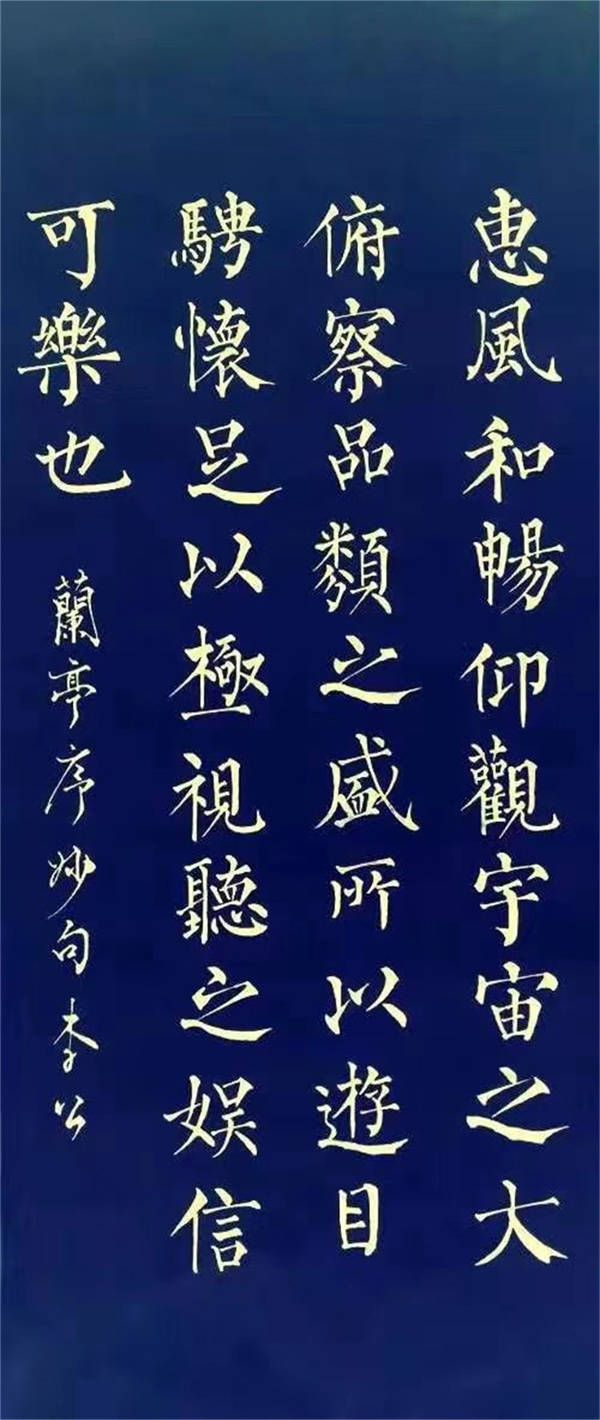 惠風和暢仰觀宇宙之大
俯察品類之盛所以遊目
騁懷足以極視聽之娱信
可樂也
蘭亭序妙句李公